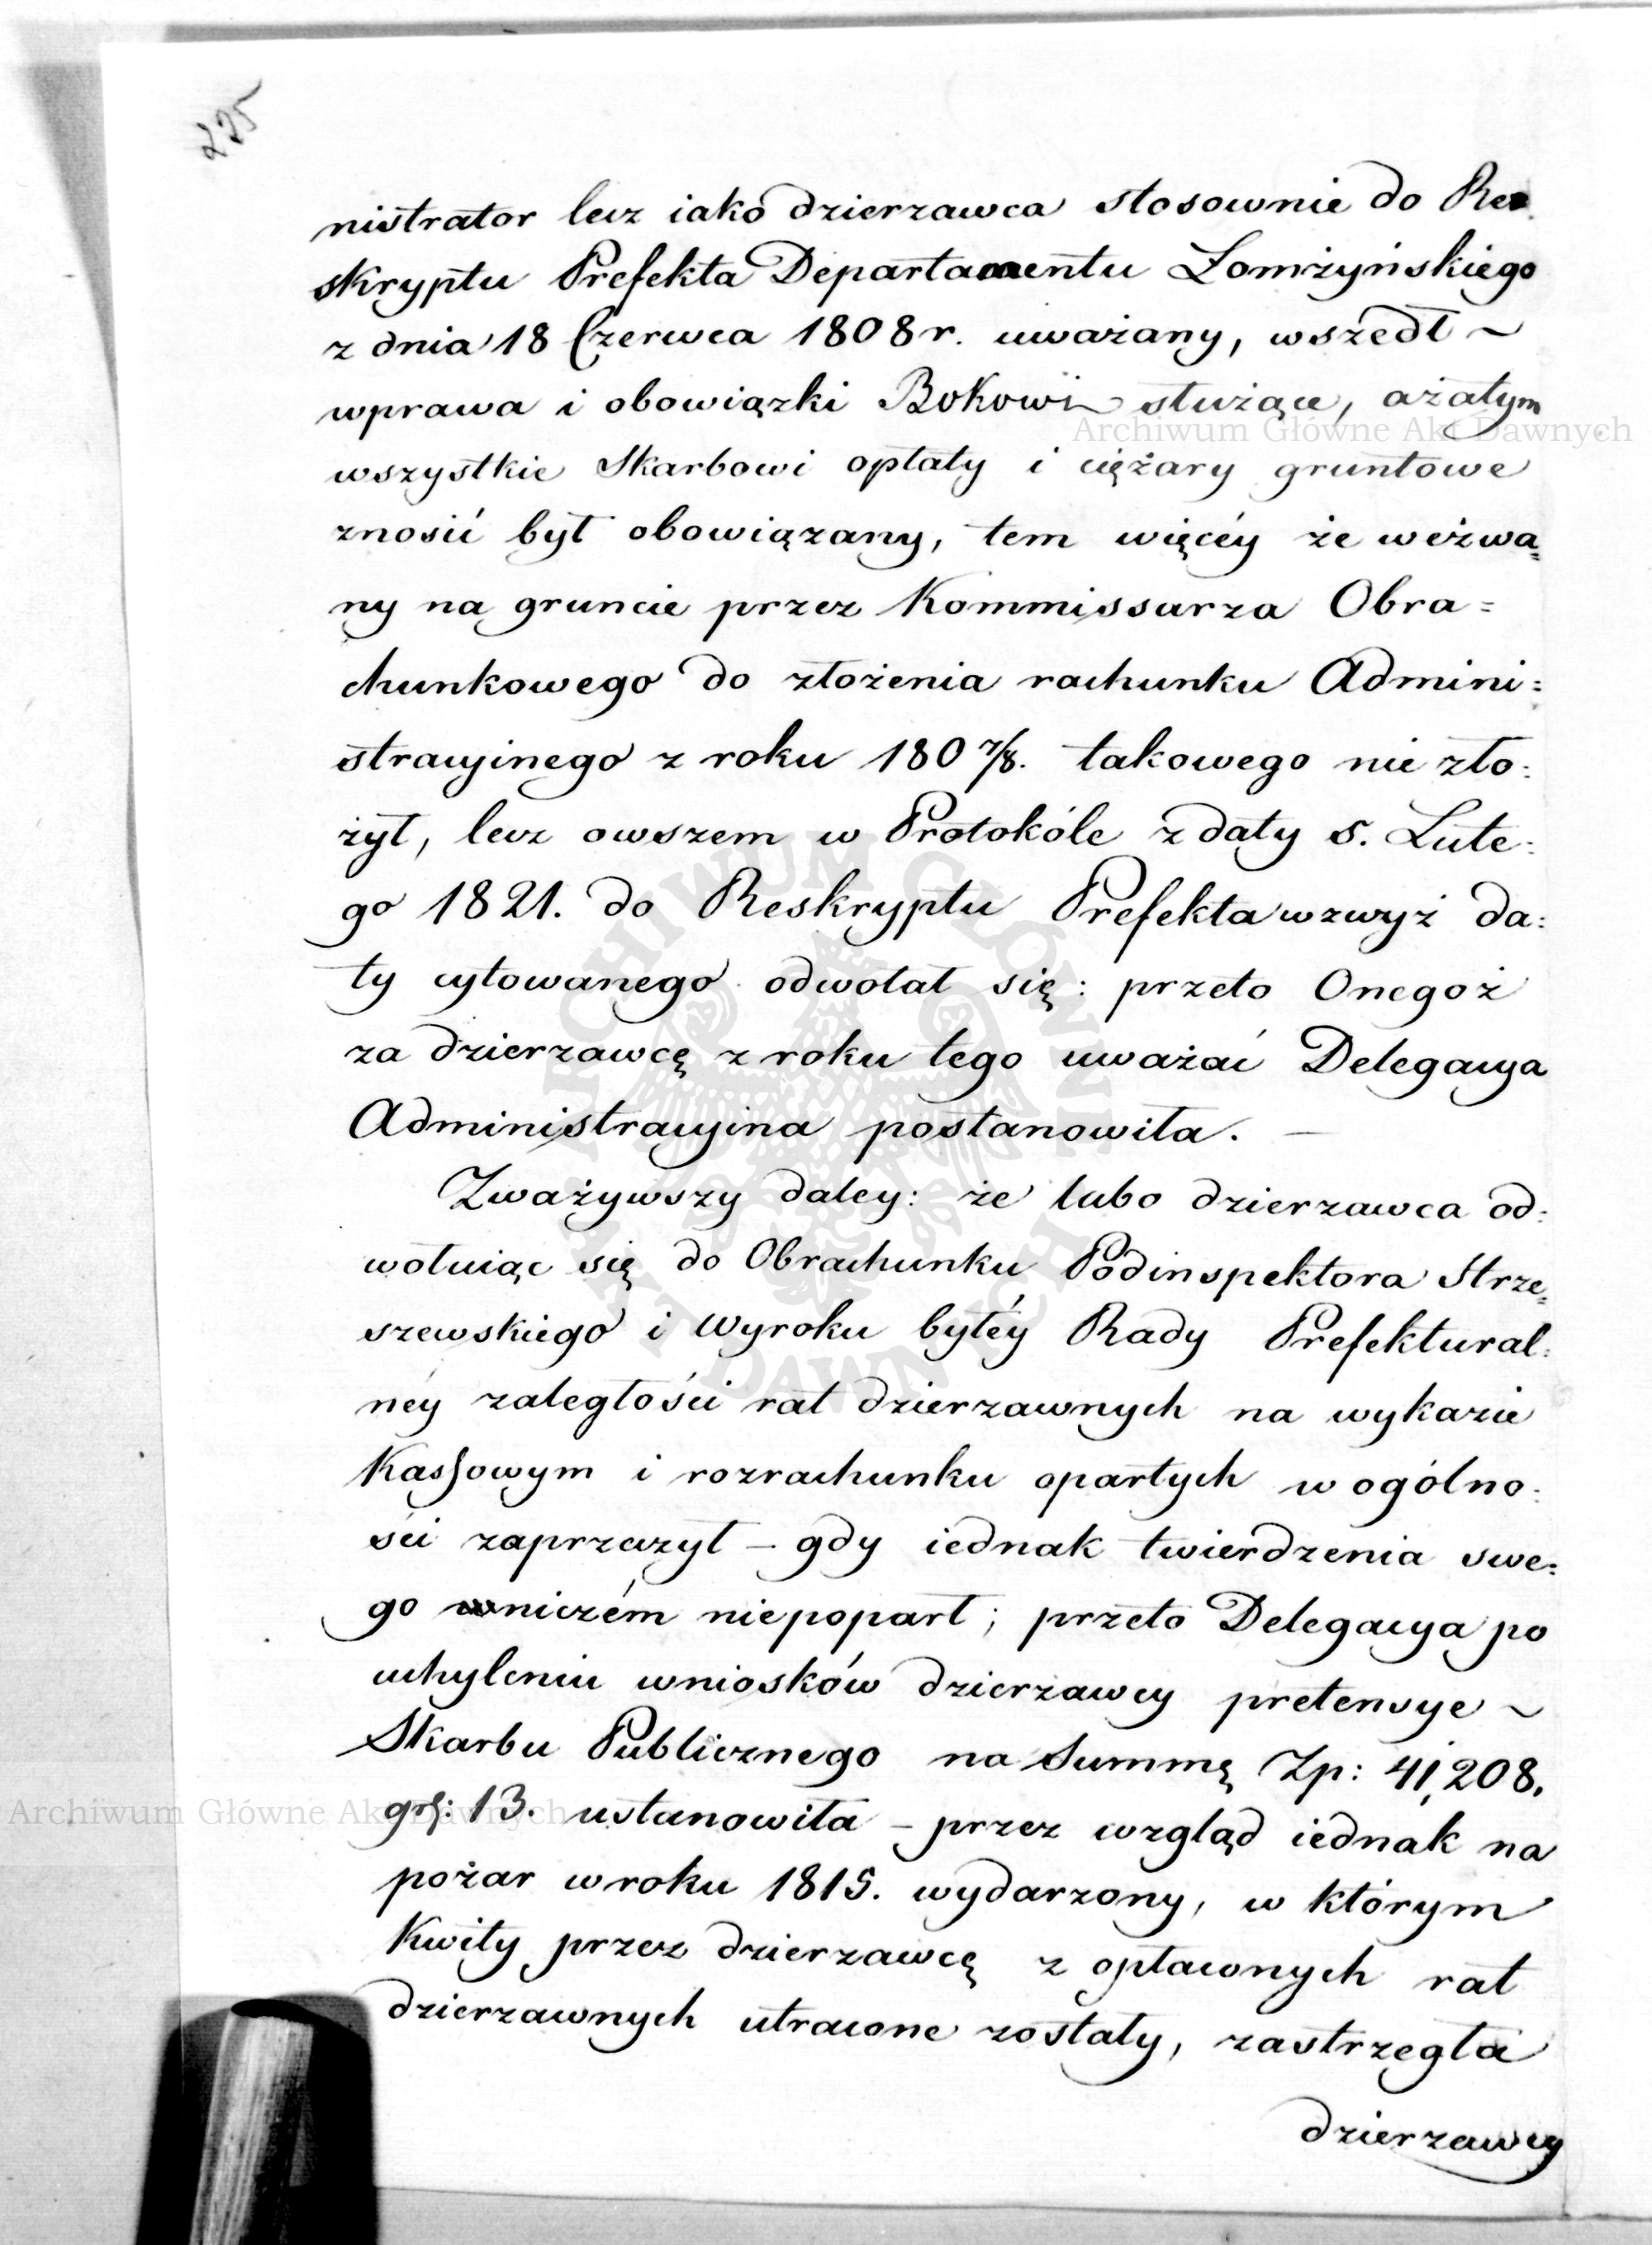 225
nistrator lecz iako dzierzawca stosownie do Re
skryptu Prefekta Departamentu Łomżyńskiego
z dnia 18 Czerwca 1808 r. uważany, wszedł ~
wprawa i obowiązki Bokowi służące, a zatym
Archiwum Główne Akt Dawnych
wszystkie Skarbowi opłaty i ciężary gruntowe
znosić był obowiązany, tem więcéy że weżwa=
ny na gruncie przez Kommissarza Obra=
chunkowego do złożenia rachunku Admini:
stracyinego z roku 180 7/8. takowego nie zło:
żył, lecz owszem w Protokóle z daty 5. Lute:
go 1821. do Reskryptu Prefekta wzwyż da:
ty cytowanego odwołał się: przeto Onegoż
za dzierzawcę z roku tego uważać Delegacya
Administracyina postanowiła. —
Zważywszy daley: że lubo dzierzawca od:
wołuiąc się do Obrachunku Podinspektora Strze=
szewskiego i Wyroku byłéy Rady Prefektural:
néy zaległości rat dzierzawnych na wykazie
Kassowym i rozrachunku opartych w ogólno:
ści zaprzeczył – gdy iednak twierdzenia swe:
go wniczém niepoparł; przeto Delegacya po
uchyleniu wniosków dzierzawcy pretensye ~
Skarbu Publicznego na Summę Zp: 41,208.
gr: 13. ustanowiła – przez wzgląd iednak na
Archiwum Główne Akt Dawnych
pożar w roku 1815. wydarzony, w którym
Kwity przez dzierzawcę z opłaconych rat
dzierzawnych utracone zostały, zastrzegła
dzierzawcy
ARCHIWUM GŁÓWNE AKT DAWNYCH